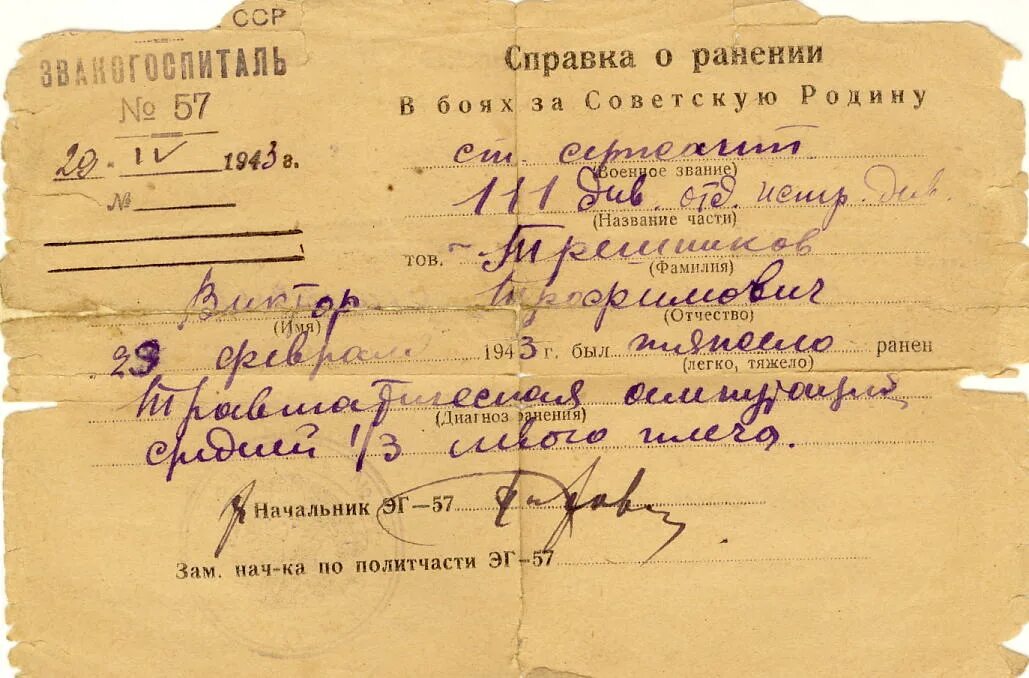 ССР
ЗВАКОГОСПИТАЛЬ
№ 57
29. IV 1943 г.
№
Справка о ранении
В боях за Советскую Родину
ст. сержант
(Военное звание)
111 див. отд. истр. див.
(Название части)
тов. Трешников
(Фамилия)
Виктор Трофимович
(Имя) (Отчество)
23 феврал 1943 г. был тяжело ранен
(легко, тяжело)
Травматическая ампутация
(Диагноз ранения)
средней 1/3 левого плеча.
Начальник ЭГ—57
Зам. нач-ка по политчасти ЭГ—57